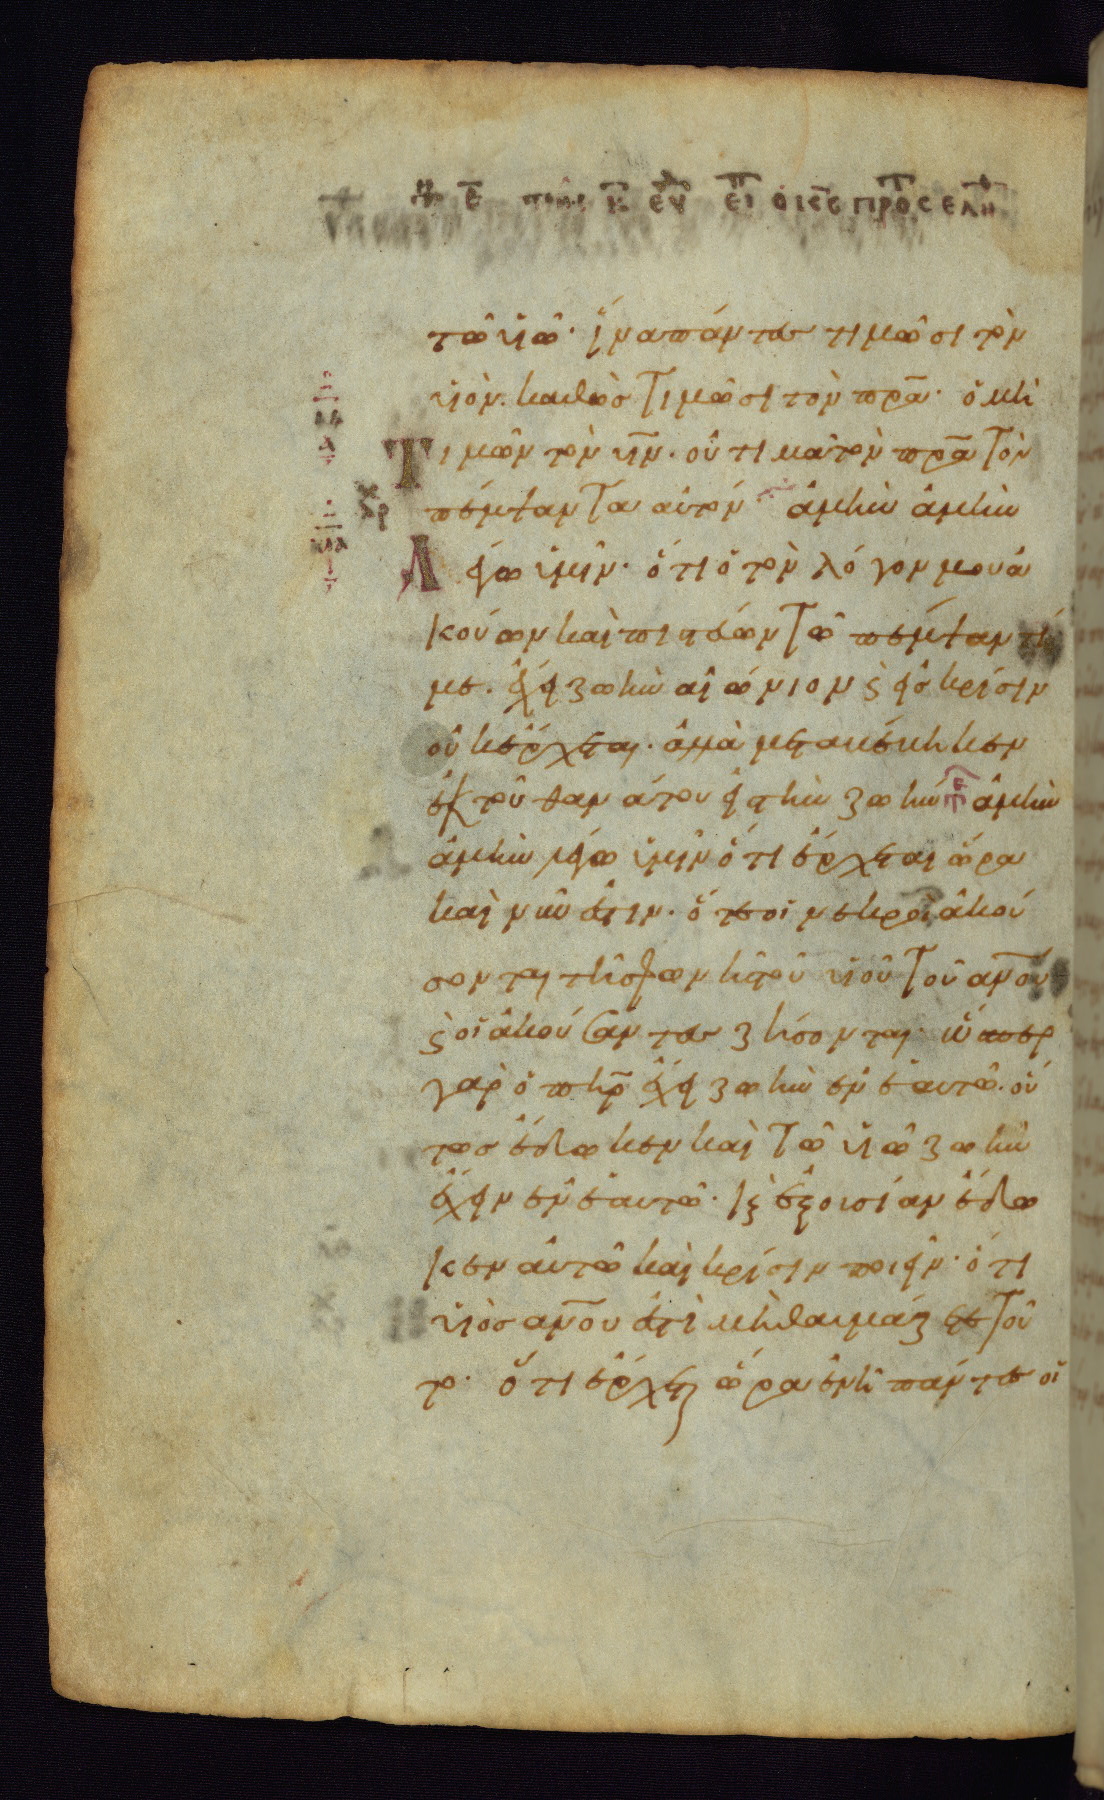 τῶ υἱῶ· ἵνα πάντες τιμῶσι τὸν
υἱὸν. καθὼς τιμῶσι τὸν πρα· ὁ μὴ
τιμῶν τὸν υν· οὐ τιμᾶ τὸν πρα τὸν
πέμψαντα αὐτόν ἀμὴν ἀμὴν
λέγω ὑμῖν· ὅτι ὁ τὸν λόγον μου ἀ
κούων καὶ πιστεύων τῶ πέμψαντί
με. ἔχει ζωὴν αἰώνιον ϗ εἰς κρίσιν
οὐκ ἔρχεται· ἀλλὰ μεταβέβηκεν
ἐκ τοῦ θανάτου εἰς τὴν ζωήν ἀμὴν
ἀμὴν λέγω ὑμῖν ὅτι ἔρχεται ὥρα
καὶ νῦν ἐστιν. ὅτε οἱ νεκροὶ ἀκού
σονται τῆς φωνῆς τοῦ υἱοῦ τοῦ ανου
ϗ οἱ ἀκούσαντες ζήσονται· ὥσπερ
γὰρ ὁ πηρ ἔχει ζωὴν ἐν ἑαυτῶ. οὕ
τως ἔδωκεν καὶ τῶ υἱῶ ζωὴν
ἔχειν ἐν ἑαυτῶ· ϗ ἐξουσίαν ἔδω
κεν αὐτῶ καὶ κρίσιν ποιεῖν· ὅτι
υἱὸς ανου ἐστὶ μὴ θαυμάζετε τοῦ
το· ὅτι ἔρχεται ὥρα ἐν ἧ πάντες οἱ